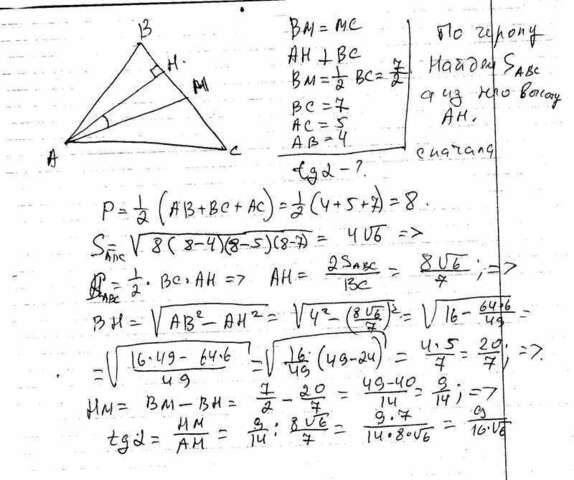 B
H.
M
A
C
BM = MC
AH ⊥ BC
BM = 1/2 BC = 7/2
BC = 7
AC = 5
AB = 4
tg α - ?
По герону
Найдем S_ABC
а из него высоту
AH.
сначала
P = 1/2 (AB + BC + AC) = 1/2 (4 + 5 + 7) = 8.
S_ABC = √(8(8-4)(8-5)(8-7)) = 4√6 =>
S_ABC = 1/2 · BC · AH => AH = 2S_ABC/BC = 8√6/7 ; =>
BH = √(AB² - AH²) = √(4² - (8√6/7)²) = √(16 - 64·6/49) =
= √((16·49 - 64·6)/49) = √(16/49 (49-24)) = 4·5/7 = 20/7 ; =>
HM = BM - BH = 7/2 - 20/7 = (49-40)/14 = 9/14 ; =>
tg α = HM/AH = 9/14 : 8√6/7 = 9·7/(14·8·√6) = 9/(16·√6)